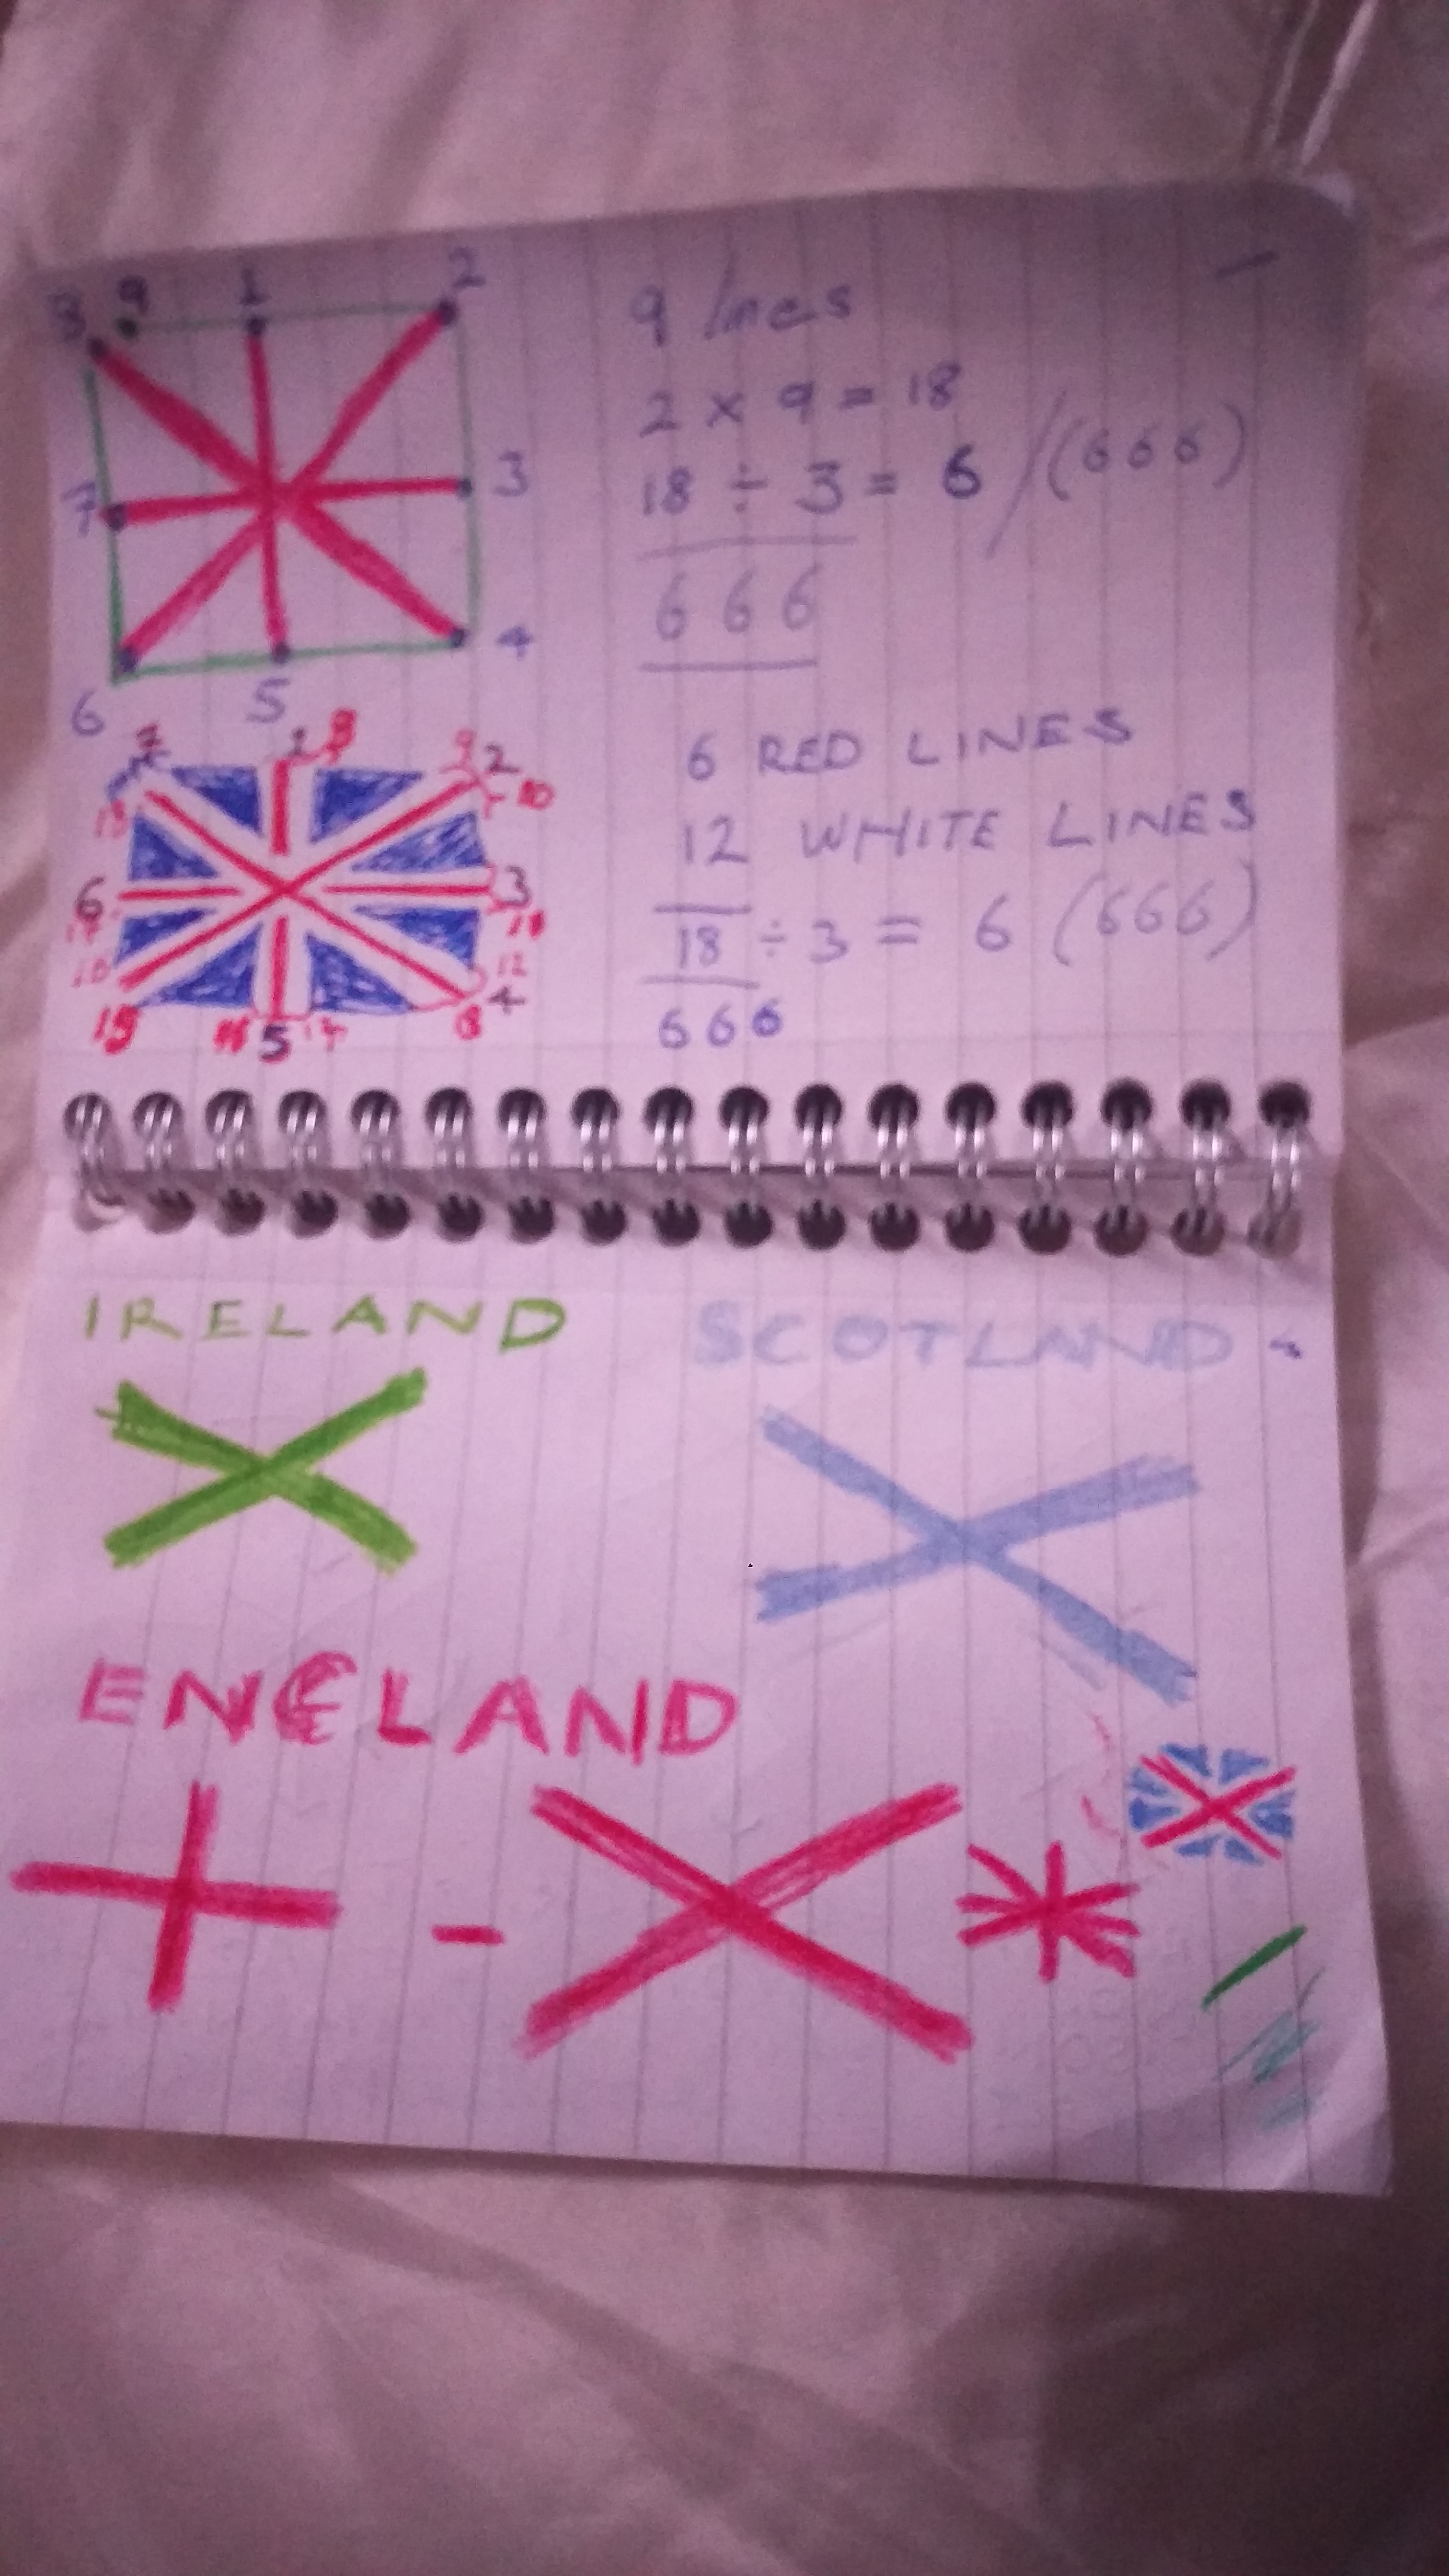 8 9 1 2
9 lines
2 x 9 = 18
18 ÷ 3 = 6 / (666)
7 3
666
4
6 5
6 RED LINES
7 1 8 9 2
10
12 WHITE LINES
6 3
18 ÷ 3 = 6 (666)
12
4
666
5
IRELAND
SCOTLAND
ENGLAND